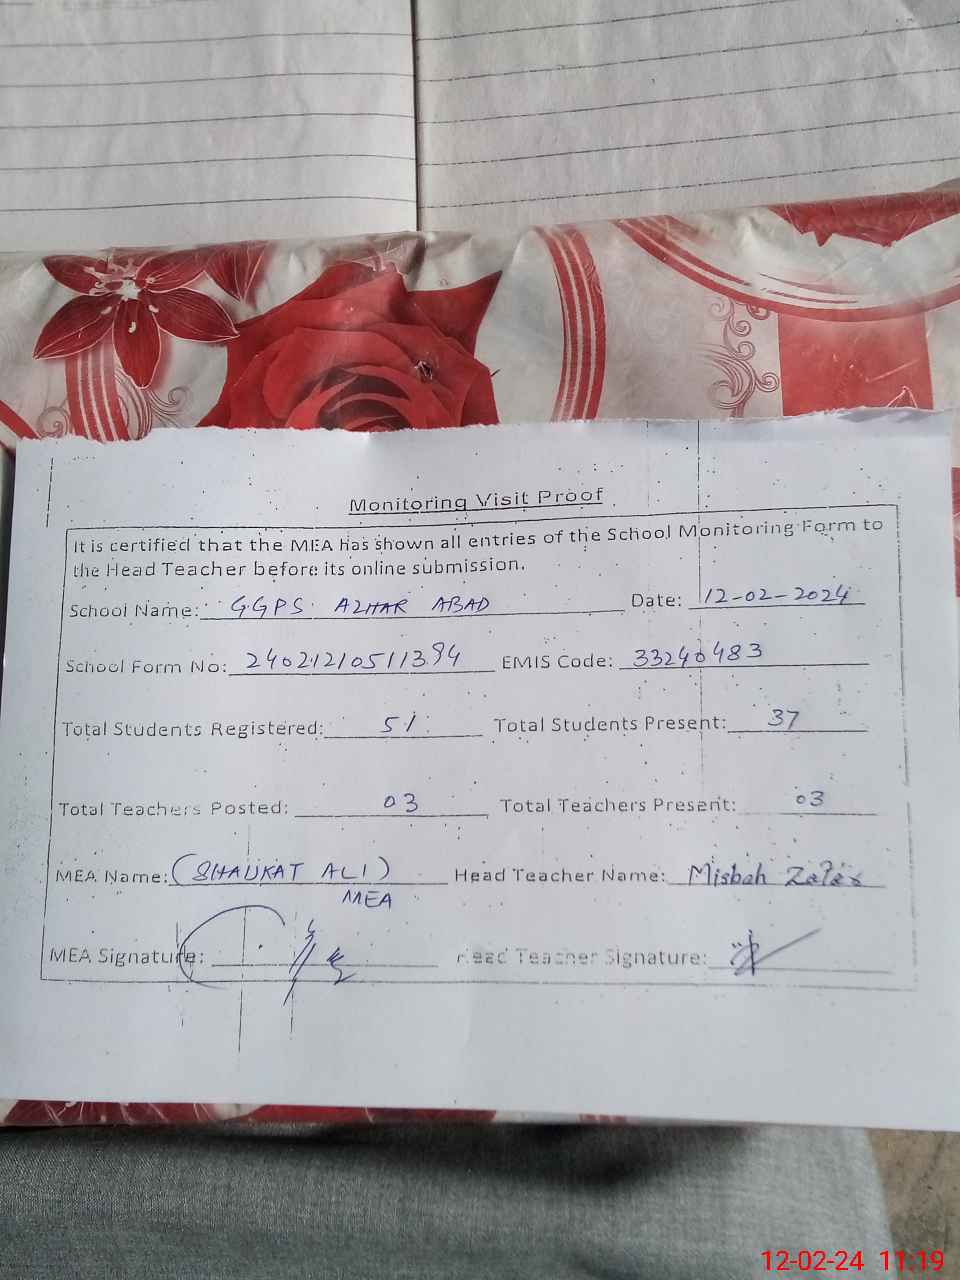 Monitoring Visit Proof
It is certified that the MEA has shown all entries of the School Monitoring Form to
the Head Teacher before its online submission.
School Name: GGPS AZHAR ABAD Date: 12-02-2024
School Form No: 240212105111394 EMIS Code: 33240483
Total Students Registered: 51 Total Students Present: 37
Total Teachers Posted: 03 Total Teachers Present: 03
MEA Name: (SHAUKAT ALI) Head Teacher Name: Misbah
MEA
MEA Signature: Head Teacher Signature:
12-02-24 11:19